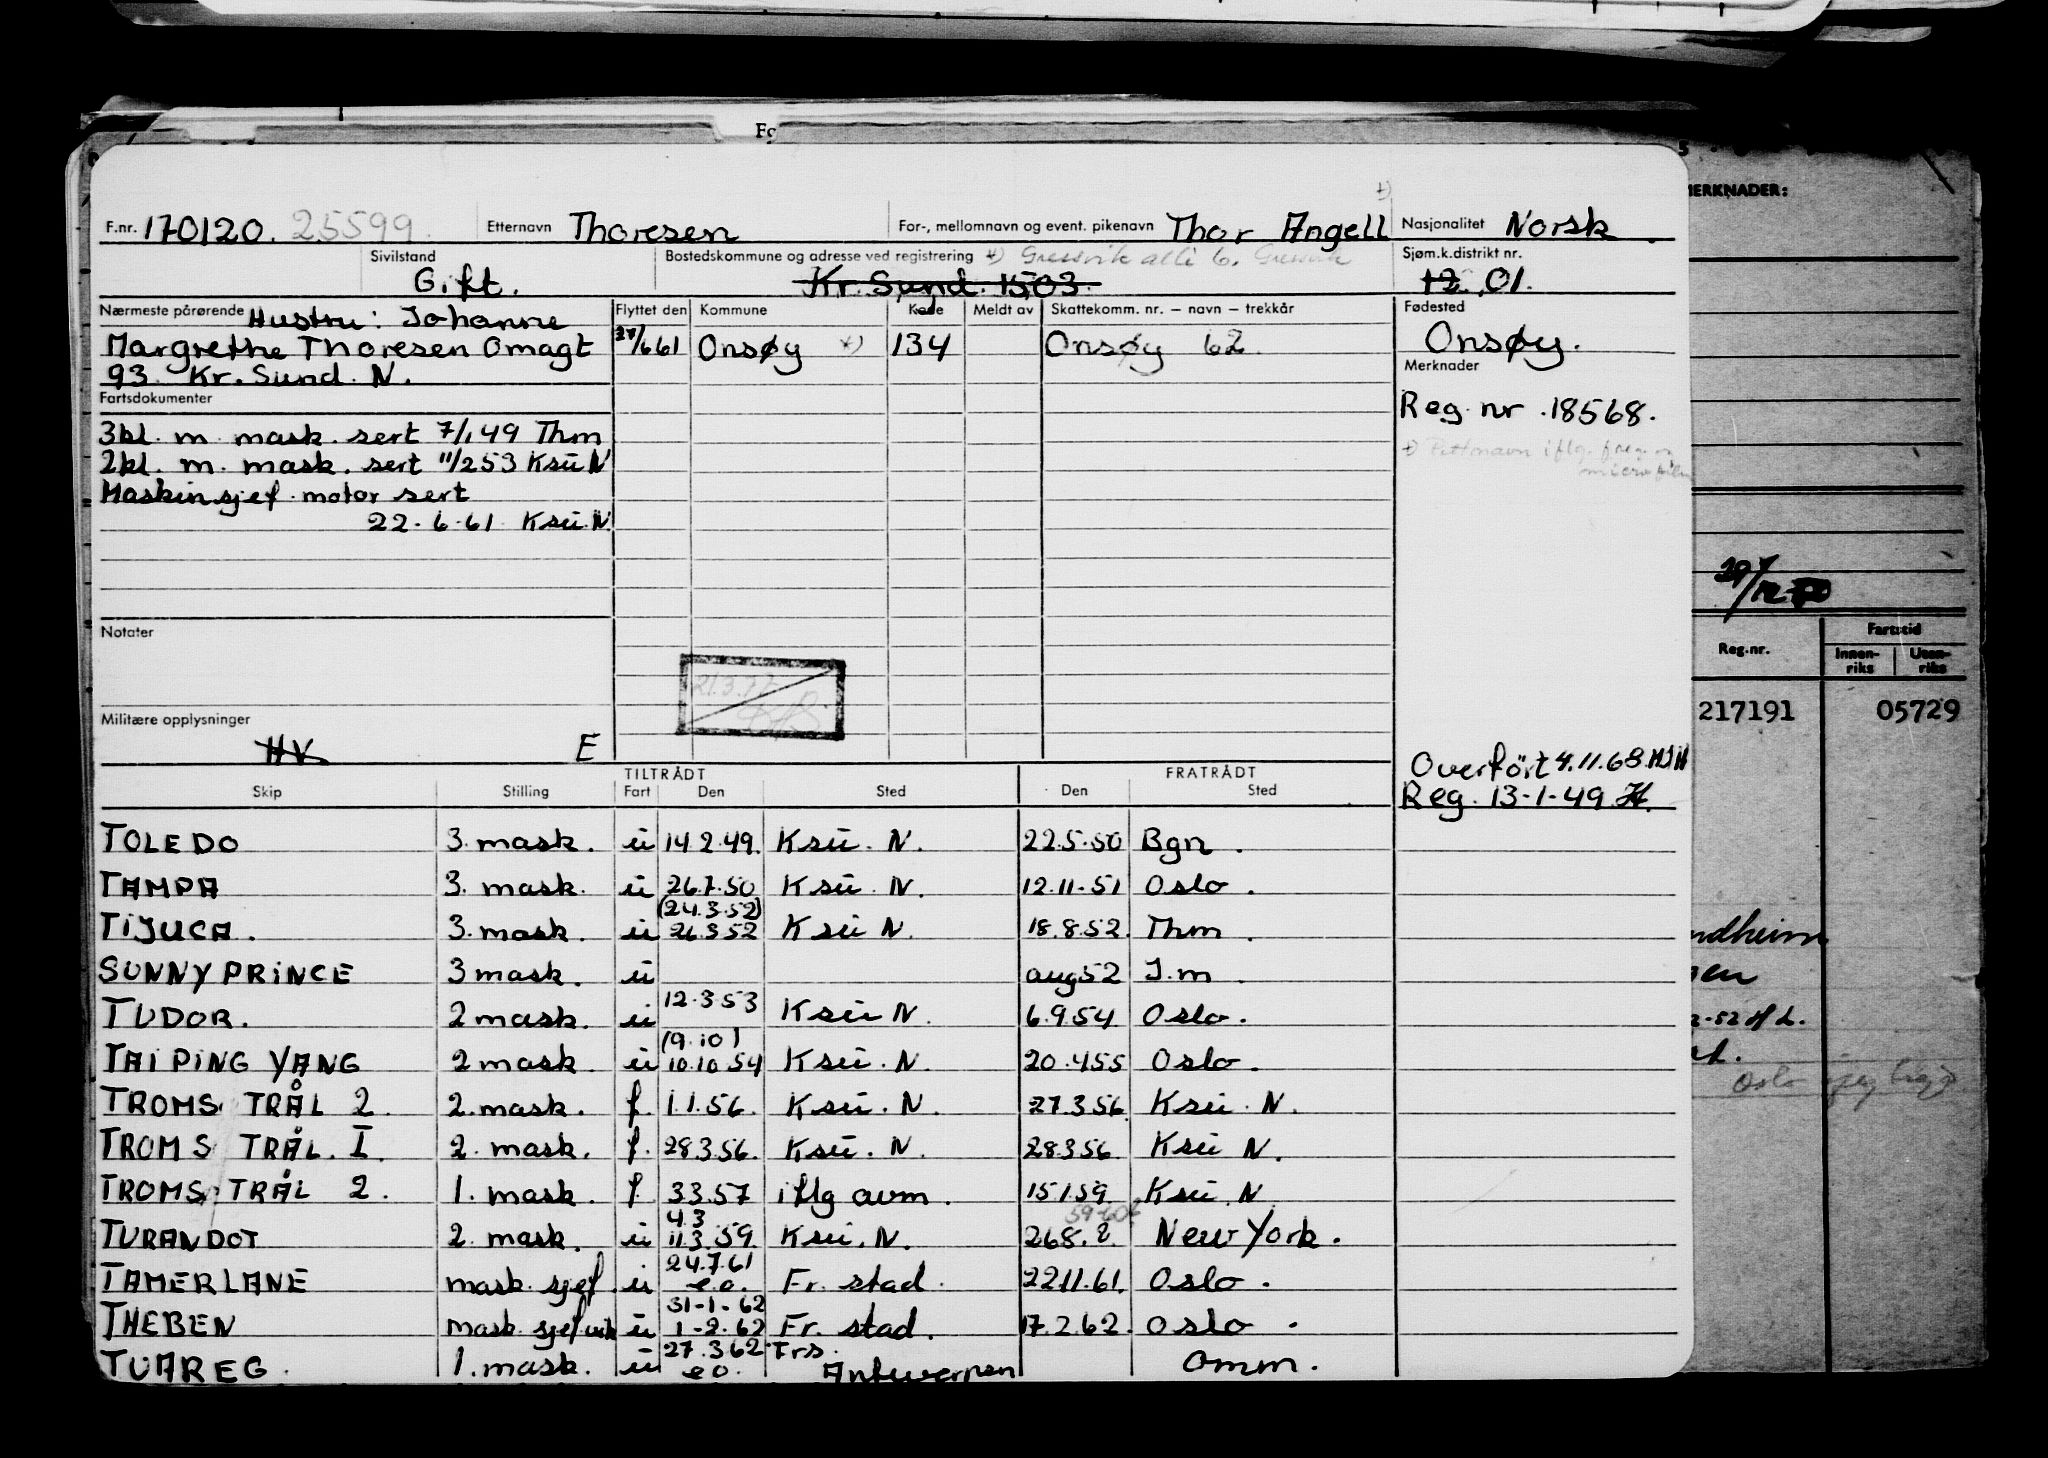 Fo
MERKNADER:
F.nr. 170120. 25599. Etternavn Thoresen For-, mellomnavn og event. pikenavn Thor Angell Nasjonalitet Norsk
Sivilstand Gift. Bostedskommune og adresse ved registrering +) Gressvik alle 6. Gressvik Kr. Sund. 1503. Sjøm.k.distrikt nr. 12 01.
Nærmeste pårørende Hustru: Johanne Flyttet den Kommune Kode Meldt av Skattekomm. nr. – navn – trekkår Fødested
Margrethe Thoresen Omagt 28/661 Onsøy +) 134 Onsøy 62 Onsøy.
93. Kr. Sund. N. Merknader
Fartsdokumenter
Reg. nr. 18568.
3kl. m. mask. sert 7/1 49 Thm
2kl. m. mask. sert 11/253 Ksü N
Maskinsjef motor sert
22.6.61 Ksü. N.
29/12-70
Notater
Reg.nr. Fartstid
Innen-riks Uten-riks
21.3.77
217191 05729
Militære opplysninger
HV E
Overført 4.11.68.
Reg. 13-1-49
TILTRÅDT FRATRÅDT
Skip Stilling Fart Den Sted Den Sted
TOLEDO 3. mask. ü 14.2.49. Ksü. N. 22.5.50 Bgn.
TAMPA 3. mask. ü 26.7.50 Ksü. N. 12.11.51 Oslo.
TIJUCA. 3. mask. ü (24.3.52) 26.3.52 Ksü N. 18.8.52. Thm.
SUNNY PRINCE 3 mask. ü aug 52 I.m.
TUDOR. 2 mask. ü 12.3.53 Ksü N. 6.9.54 Oslo.
TAI PING YANG 2 mask. ü (9.10) 10.10.54 Ksü. N. 20.4.55 Oslo.
TROMS TRÅL 2. 2. mask. f. 1.1.56. Ksü. N. 27.3.56 Ksü. N.
TROMS TRÅL. I. 2. mask. f. 28.3.56. Ksü. N. 28.3.56. Ksü N.
TROMS TRÅL 2. 1. mask. f 3.3.57 iflg avm. 15.1.59. Ksü. N
TURANDOT 2. mask. ü 4.3 11.3.59. Ksü. N. 26.8.? New York.
TAMERLANE mask. sjef. ü 24.7.61 e.o. Fr. stad. 22.11.61. Oslo.
THEBEN mask. sjef vik ü 31-1-62 1-2.62 Fr. stad. 17.2.62. Oslo.
TUAREG. 1. mask. ü 27.3.62 e o. Frs. Antwerpen Omm.